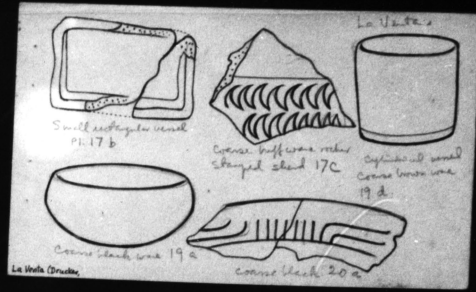 La Venta.
Small rectangular vessel
Pl. 17 b
Coarse buff ware rocker
stamped sherd 17C
Cylindrical vessel
coarse brown ware
19 d
Coarse black ware 19 a
coarse black 20 a
La Venta (Drucker,